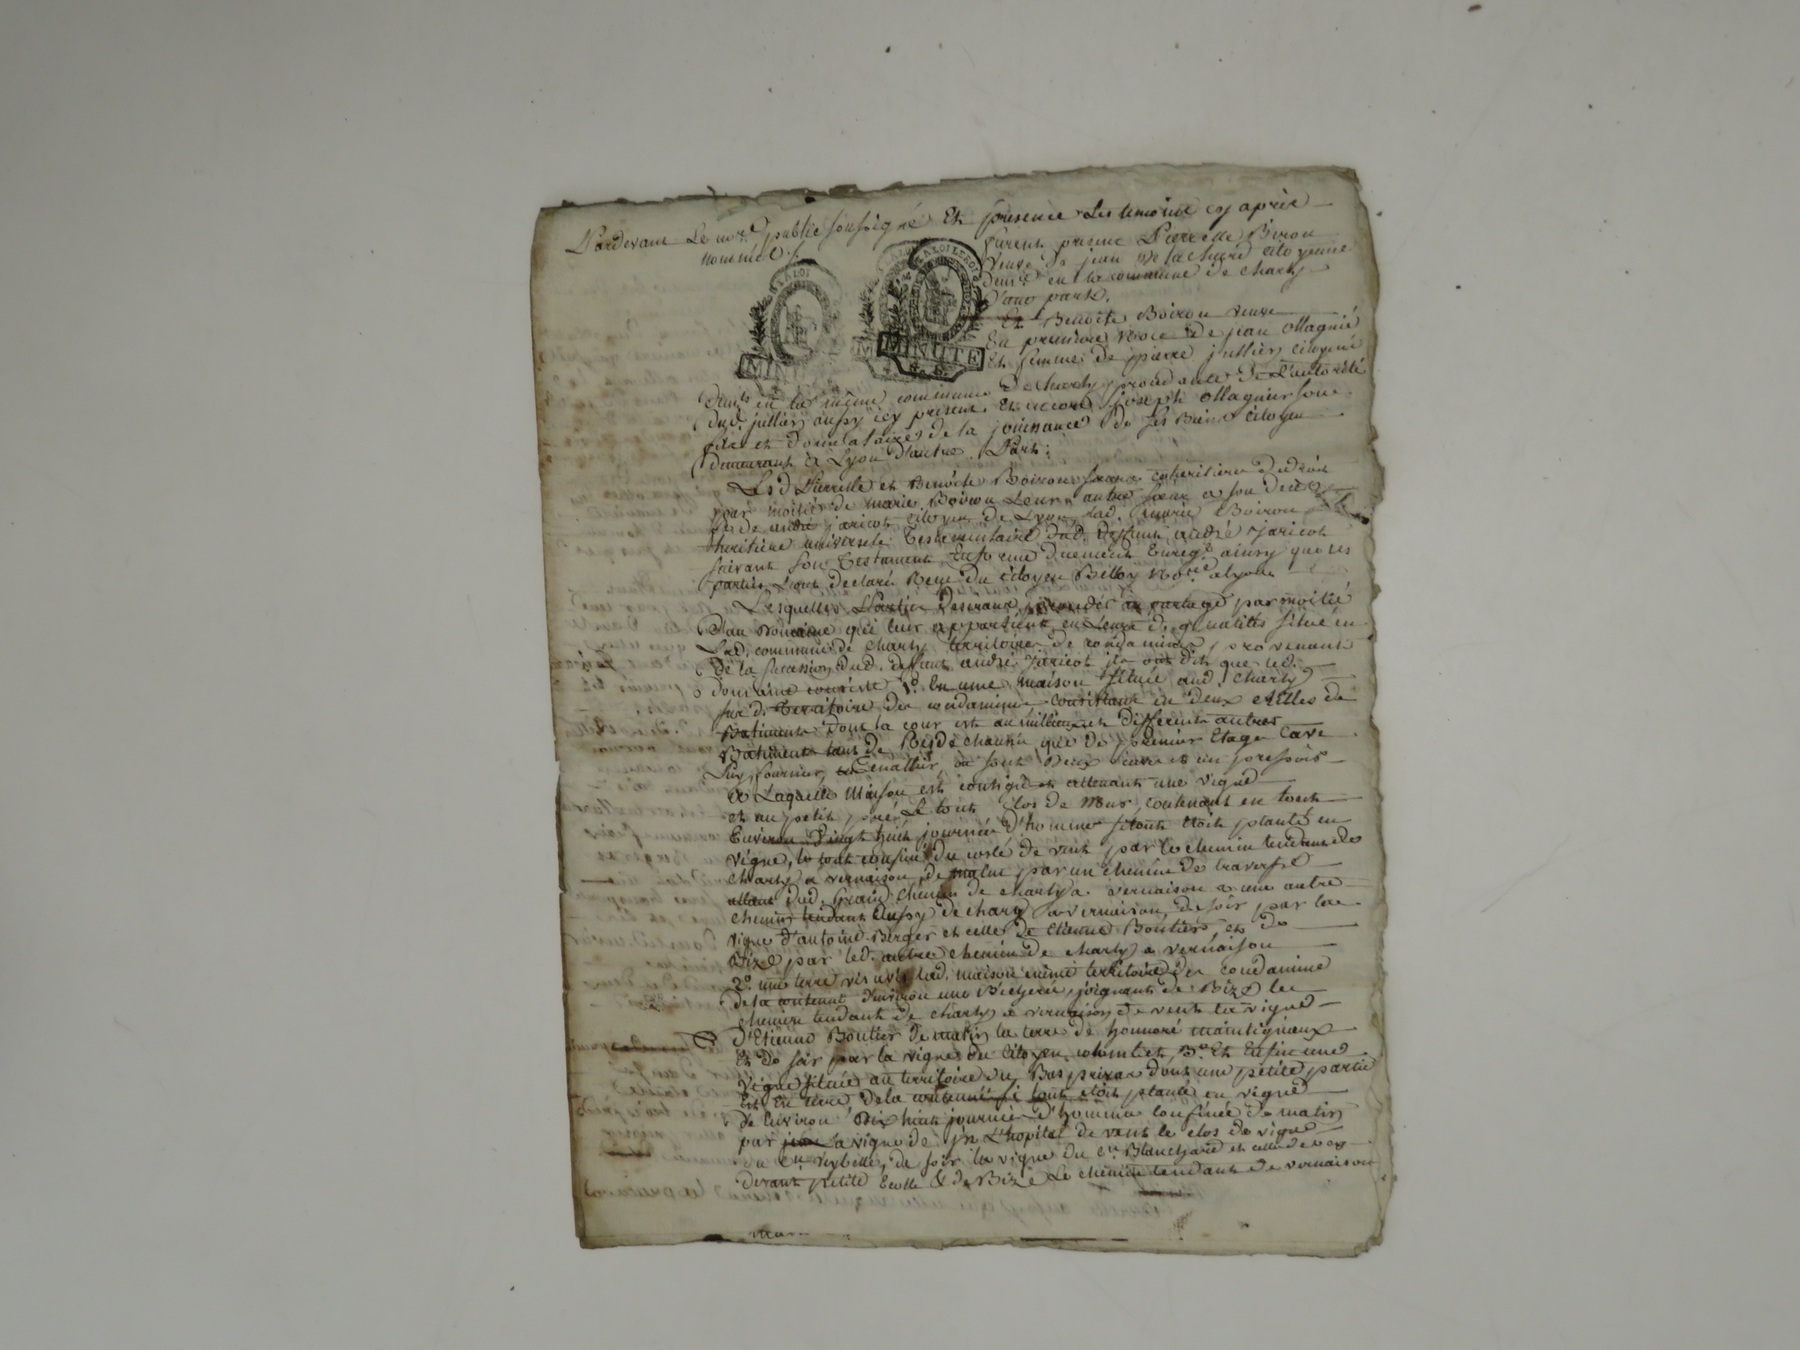 Pardevant Le no.re public soussigné Et presence Les temoins cy après
nommés
furent presents Pierrette Boiron
Veuve de jean Delachard citoyenne
dem.t en la commune de Charly
D'une part.
Et Benoite Boiron veuve
En premiere Noce de jean Ollagnié
Et femme de pierre jullien citoyens
dem.ts en la même commune de charly procedante de L'autorité
dud. jullien aussy icy present Et encore joseph Ollagnier son
fils et donnataire de la jouissance de ses Biens citoyen
demeurant à Lyon D'autre Part:
Les d Pierrette et Benoite Boiron sœurs coheritieres de droit
pour moitié de marie Boiron Leur autre sœur a son deces
de andré jaricot citoyen de Lyon, lad. marie Boiron
heritiere universelle testamentaire dud. deffunt andré jaricot
suivant son Testament En forme duement Enreg.é ainsy que les
parties L'ont declaré Reçu du citoyen No.re a Lyon
Lesquelles Parties Desirant proceder au partage par moitié
D'un Domaine qui leur appartient en Leurs d. qualités situé en
Lad. commune de Charly territoire de condamine, provenant
de la succession dud. deffunt andré jaricot ils ont dit que led.
domaine consiste 1.o En une maison située aud. Charly
sur d. Territoire de condamine consistant en deux estelles de
Batiments dont la cour est au millieu et differents autres
Batiments tant de Rez de chaussée que de premier Etage Cave
Puy, fournier, Cenallier, ou sont deux cuves et un pressois
a Laquelle Maison est contigue et attenant une vigne
et un petit pré Le tout clos de Mur, contenant en tout
Environ Vingt huit journées d'hommes si tout etoit planté en
vigne, le tout confiné du costé de vent par le chemin tendant de
charly a vernaison, de matin par un chemin de traverse
allant dud. grand chemin de charly a vernaison a une autre
chemin tendant aussy de charly a vernaison, de soir par la
vigne d'antoine Berger et celle de Etienne Boutier, et de
Bize par led. autre chemin de charly a vernaison
2.o une terre vis a vis lad. maison même territoire de condamine
de la contenue d'environ une Bicherée, joignant de Bize le
chemin tendant de charly a vernaison de vent la vigne
D'Etienne Boutier de matin la terre de honnoré
Et de soir par la vigne du citoyen colombet, 3.o Et Enfin une
vigne située au territoire du Bas privas dont une petite partie
Est en terre de la contenue si tout etoit planté en vigne
de Environ Dix huit journées d'hommes confinée de matin
par la vigne de jn L'hopital de vent le clos de vigne
du c.n de soir la vigne du c.n Blanchard et celle de
devant petite Ecolle & de Bize Le chemin tendant de vernaison
MINUTE
MINUTE